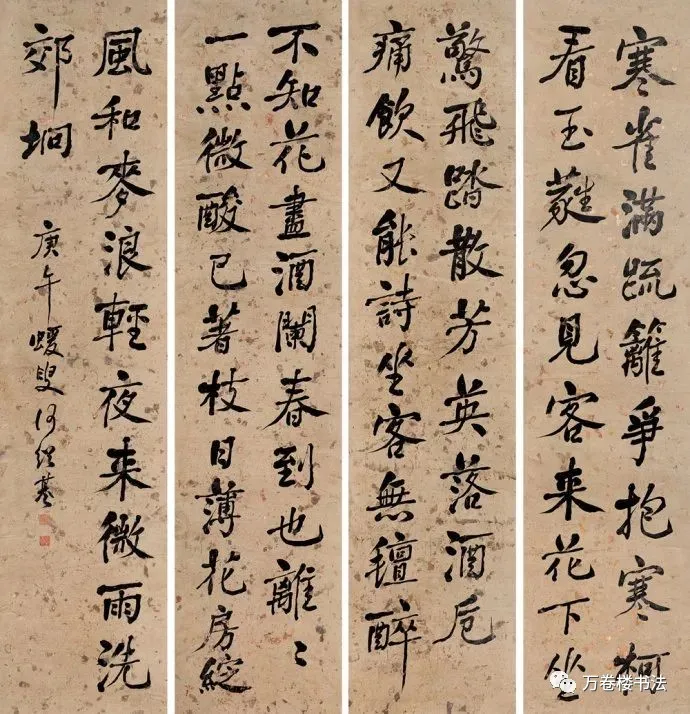 寒雀滿疏籬爭抱寒柯
看玉蕤忽見客来花下坐
驚飛踏散芳英落酒卮
痛飲又能詩坐客無氊醉
不知花盡酒闌春到也離〻
一點微酸已著枝日薄花房綻
風和麥浪輕夜来微雨洗
郊坰
庚午蝯叟何紹基
万卷楼书法